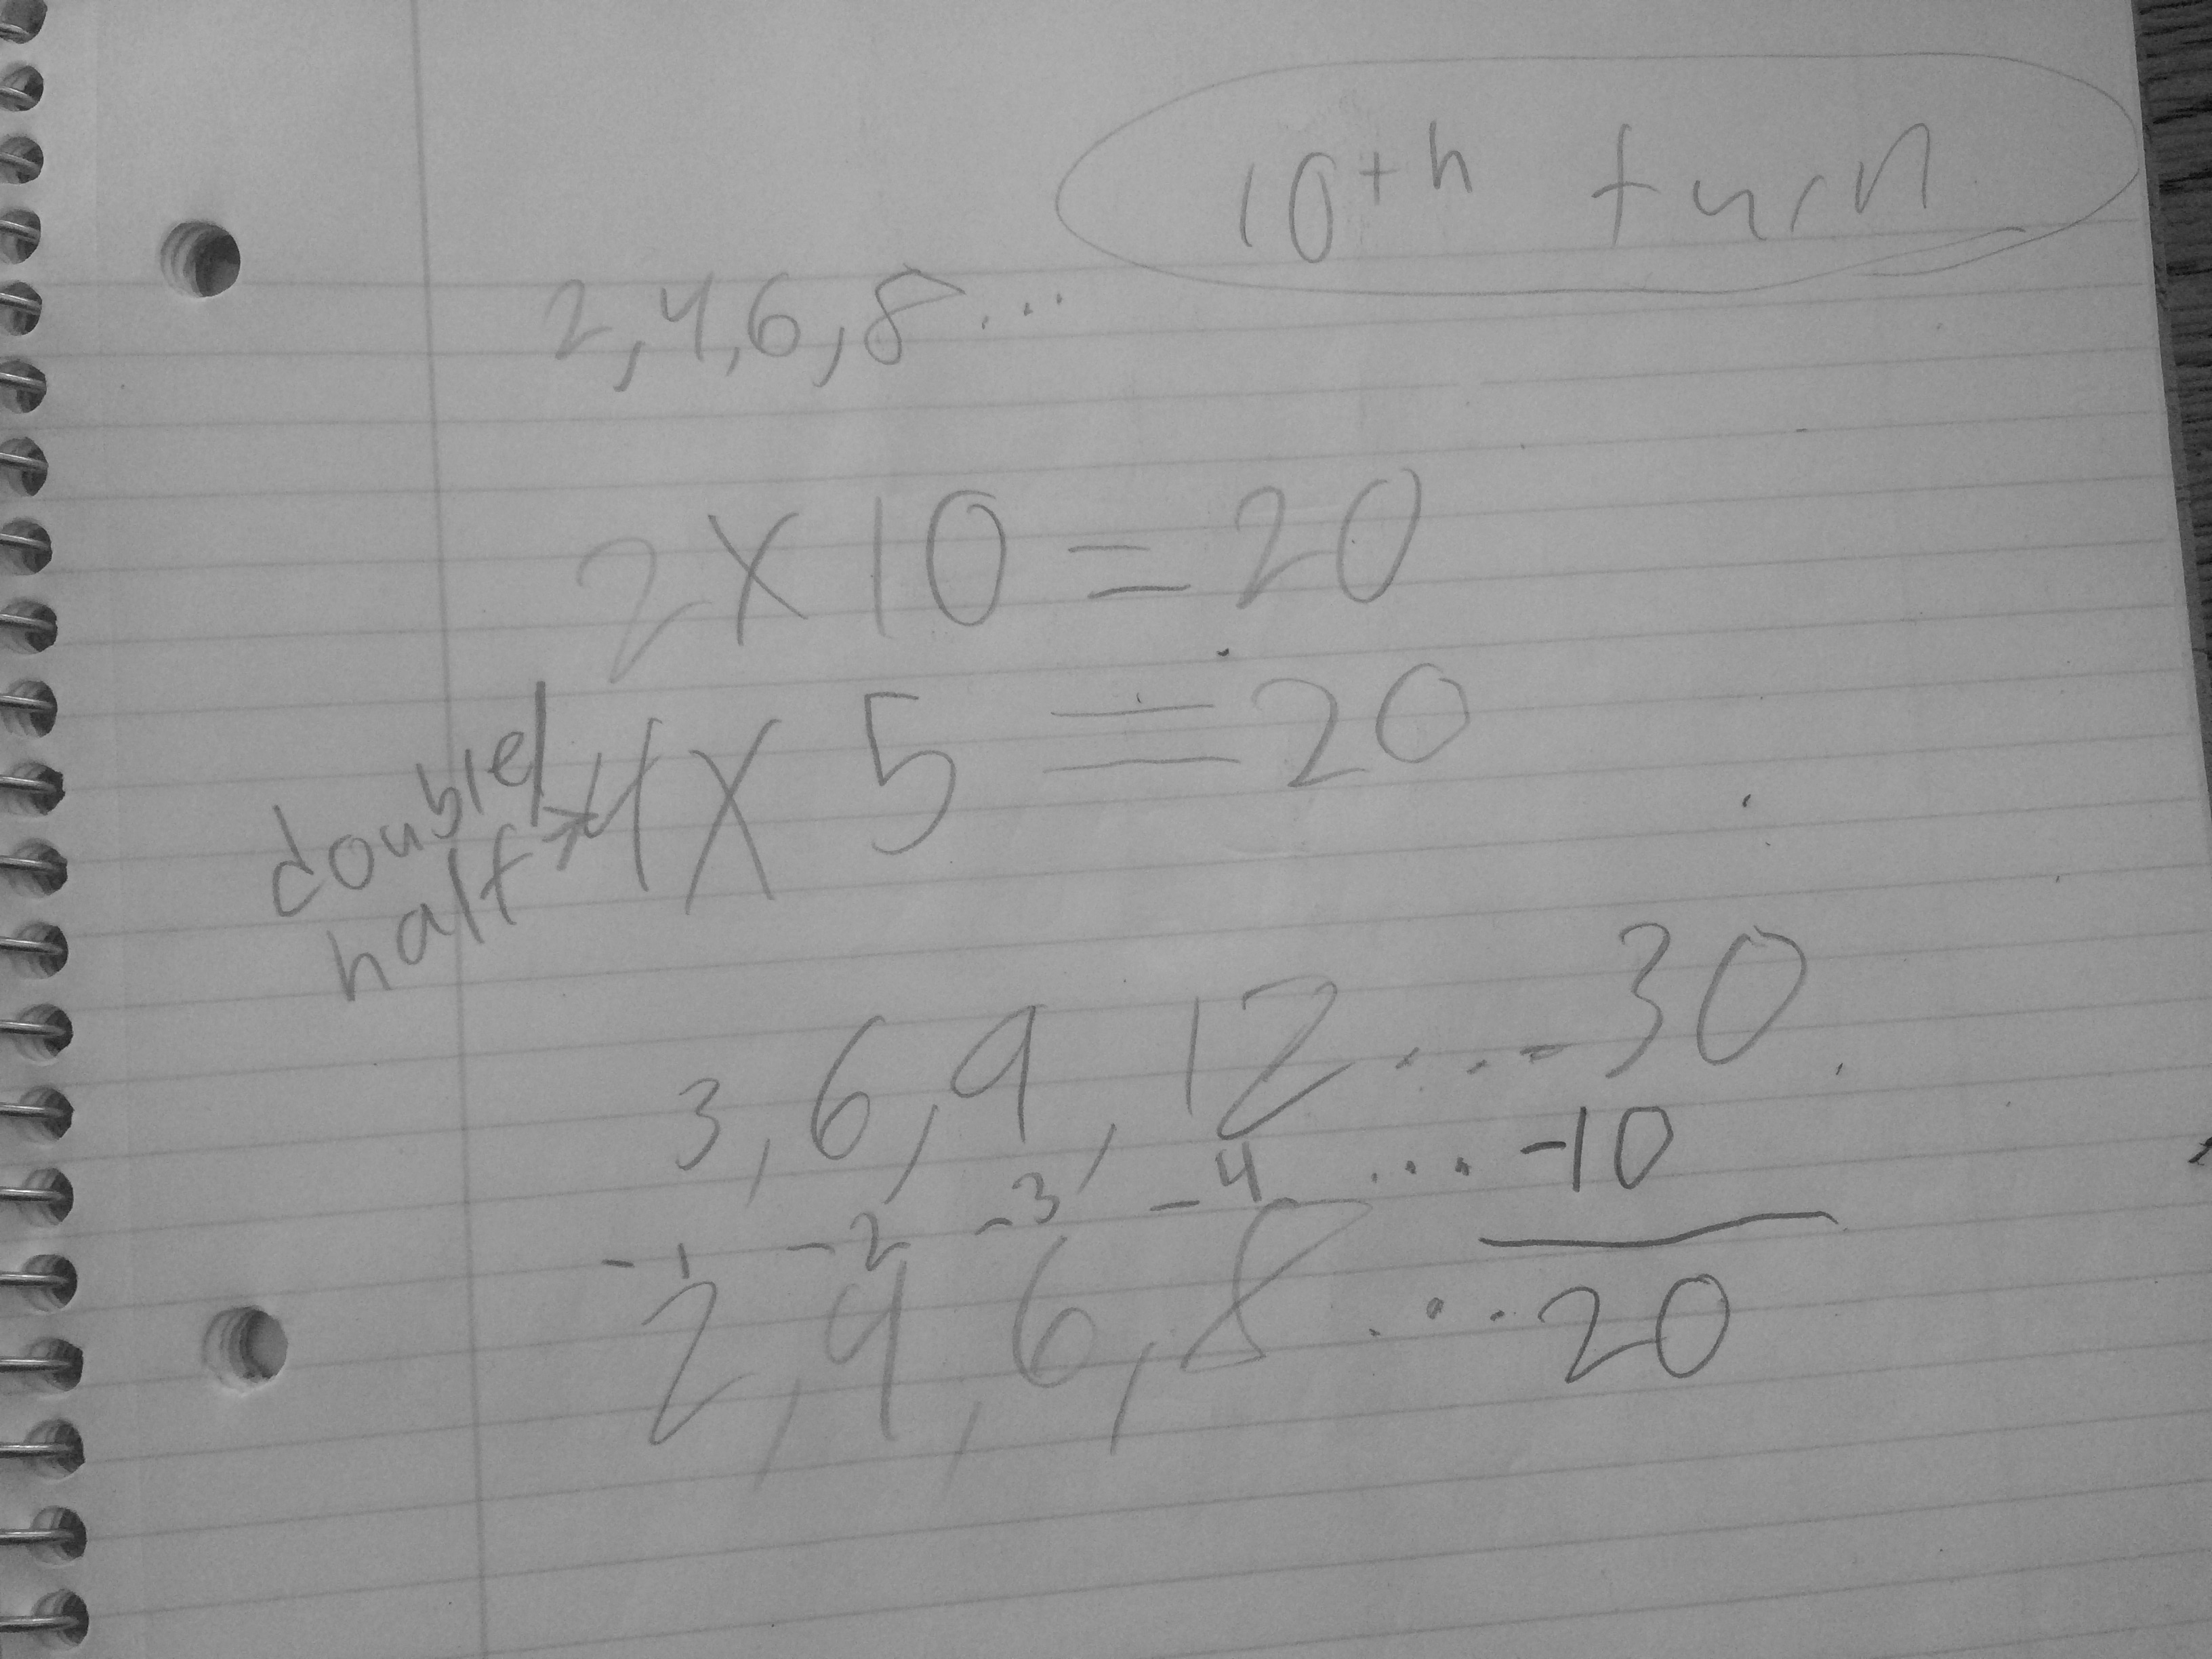 10th turn
2,4,6,8...
2 x 10 = 20
double/
half → 4 x 5 = 20
3, 6, 9, 12 ... 30
-1 -2 -3 -4 ... -10
2, 4, 6, 8 ... 20